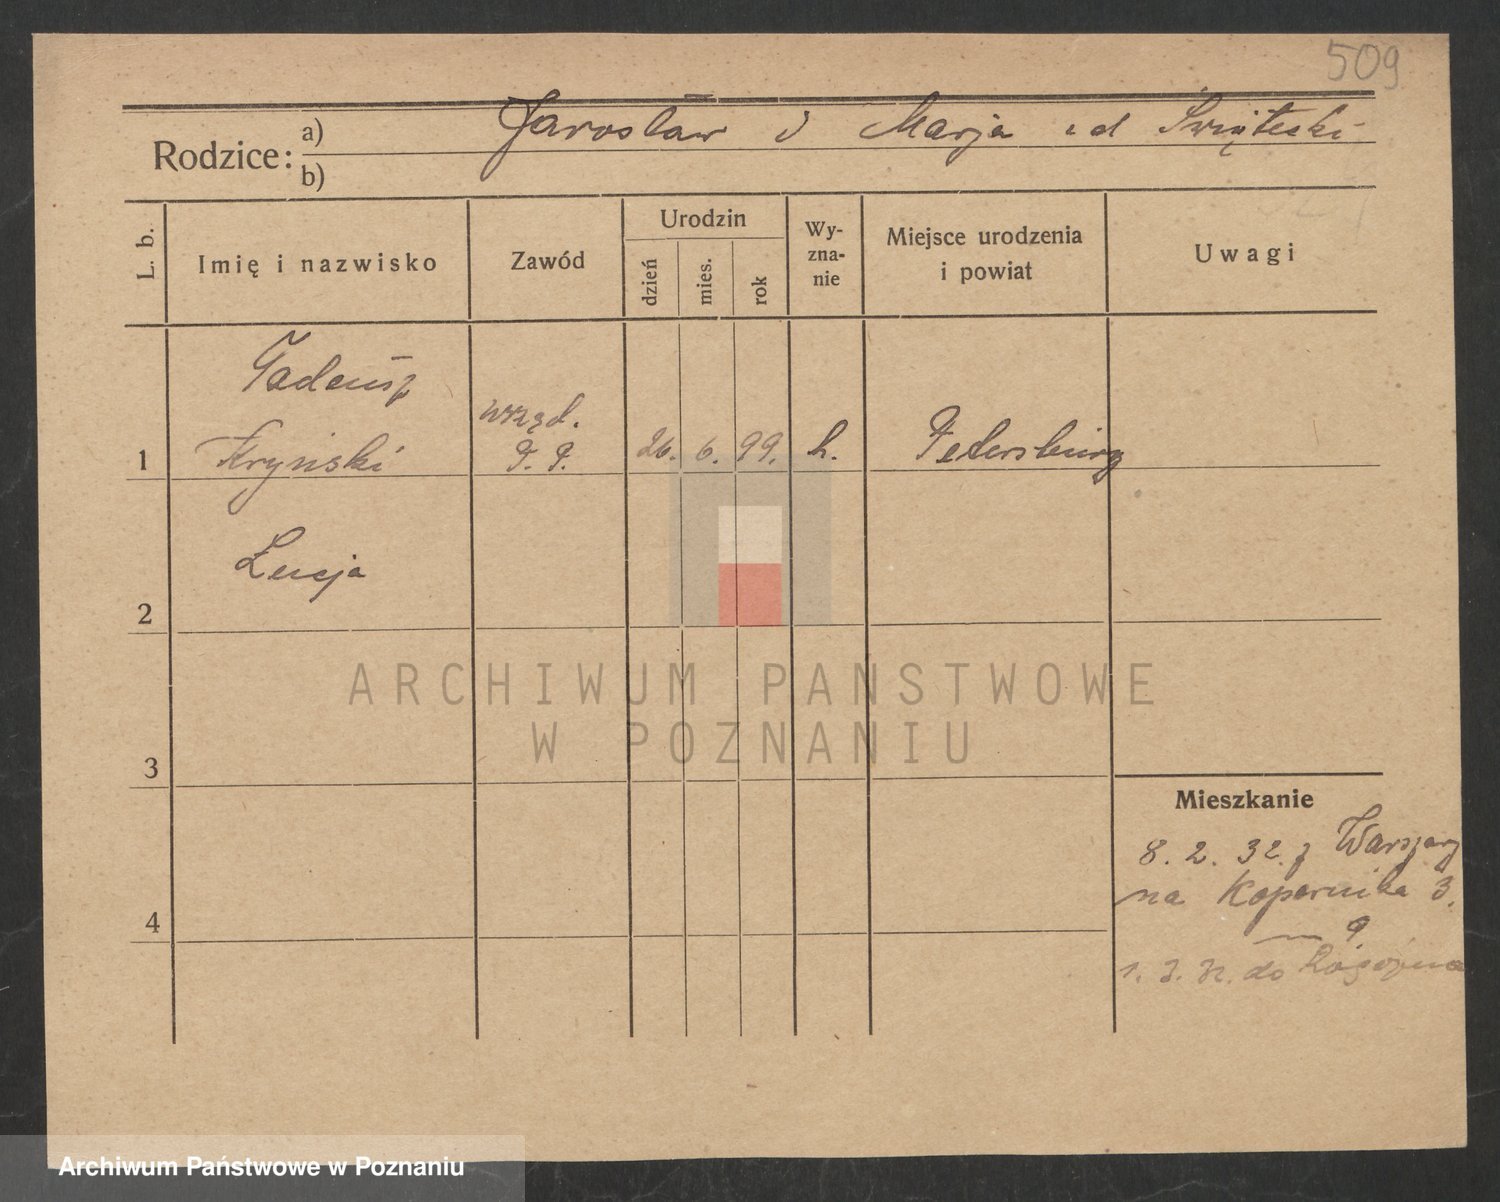 509
Rodzice: a) Jarosław i Marja
b)
L. b.
Imię i nazwisko
Zawód
Urodzin
dzień
mies.
rok
Wy-
zna-
nie
Miejsce urodzenia
i powiat
Uwagi
Tadeusz
urzęd.
1 Kryński P. P. 26. 6. 99. k. Petersburg
Lucja
2
3
4
Mieszkanie
8. 2. 32. z Warszawy
na Kopernika 3.
9
1. 3. 32. do Rogoźna
ARCHIWUM PAŃSTWOWE
W POZNANIU
Archiwum Państwowe w Poznaniu